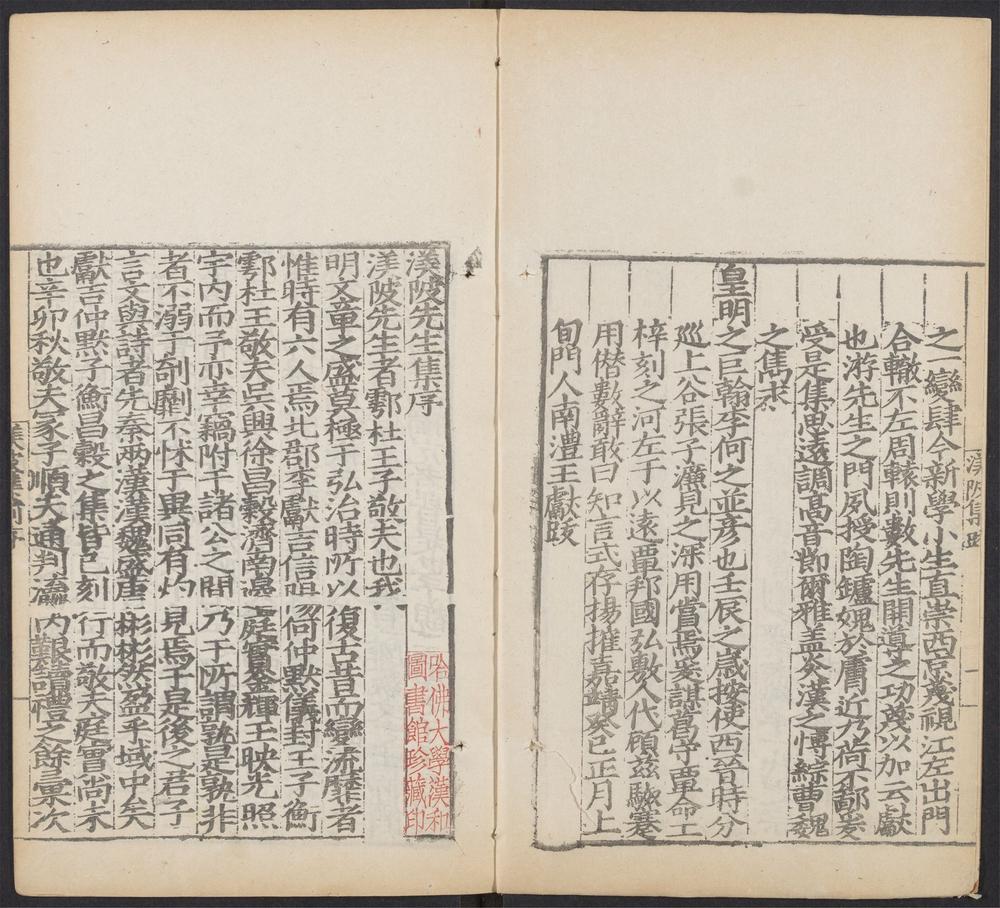 之一變肆今新學小生直崇西京蔑視江左出門
合轍不左周轅則數先生開導之功蔑以加云獻
也游先生之門夙授陶鑪媿於庸近乃荷不鄙爰
受是集思遠調高音節爾雅蓋炎漢之博綜曹魏
之雋永
皇明之巨翰李何之並彥也壬辰之歲按使西晉時分
巡上谷張子瀍見之深用嘗焉爰謀葛守覃命工
梓刻之河左于以遠覃邦國弘敷人代顧茲駿蹇
用僣數辭敢曰知言式存揚搉嘉靖癸巳正月上
旬門人南澧王獻跋
渼陂集
渼陂先生集序
渼陂先生者鄠杜王子敬夫也我
明文章之盛莫極于弘治時所以復古昔而變流靡者
惟時有六人焉北郡李獻吉信陽何仲默儀封王子衡
鄠杜王敬夫吳興徐昌穀濟南邊庭實金輝玉映光照
宇内而予亦幸竊附于諸公之間乃于所謂孰是孰非
者不溺于剖劘不怵于異同有灼見焉于是後之君子
言文與詩者先秦兩漢漢魏盛唐彬彬然盈乎域中矣
獻吉仲默子衡昌穀之集皆已刻行而敬夫庭實尚未
也辛卯秋敬夫冢子順夫通判瀛内艱讀禮之餘彙次
哈佛大學漢和
圖書館珍藏印